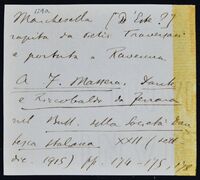 Marchesella [D'Este?]
rapita da Pietro Traversari
e portata a Ravenna
A. F. Massera. Dante
e Riccobaldo da Ferrara
nel Bull. della Società Dan-
tesca italiana XXII (sett
dic. 1915) pp. 174-175,